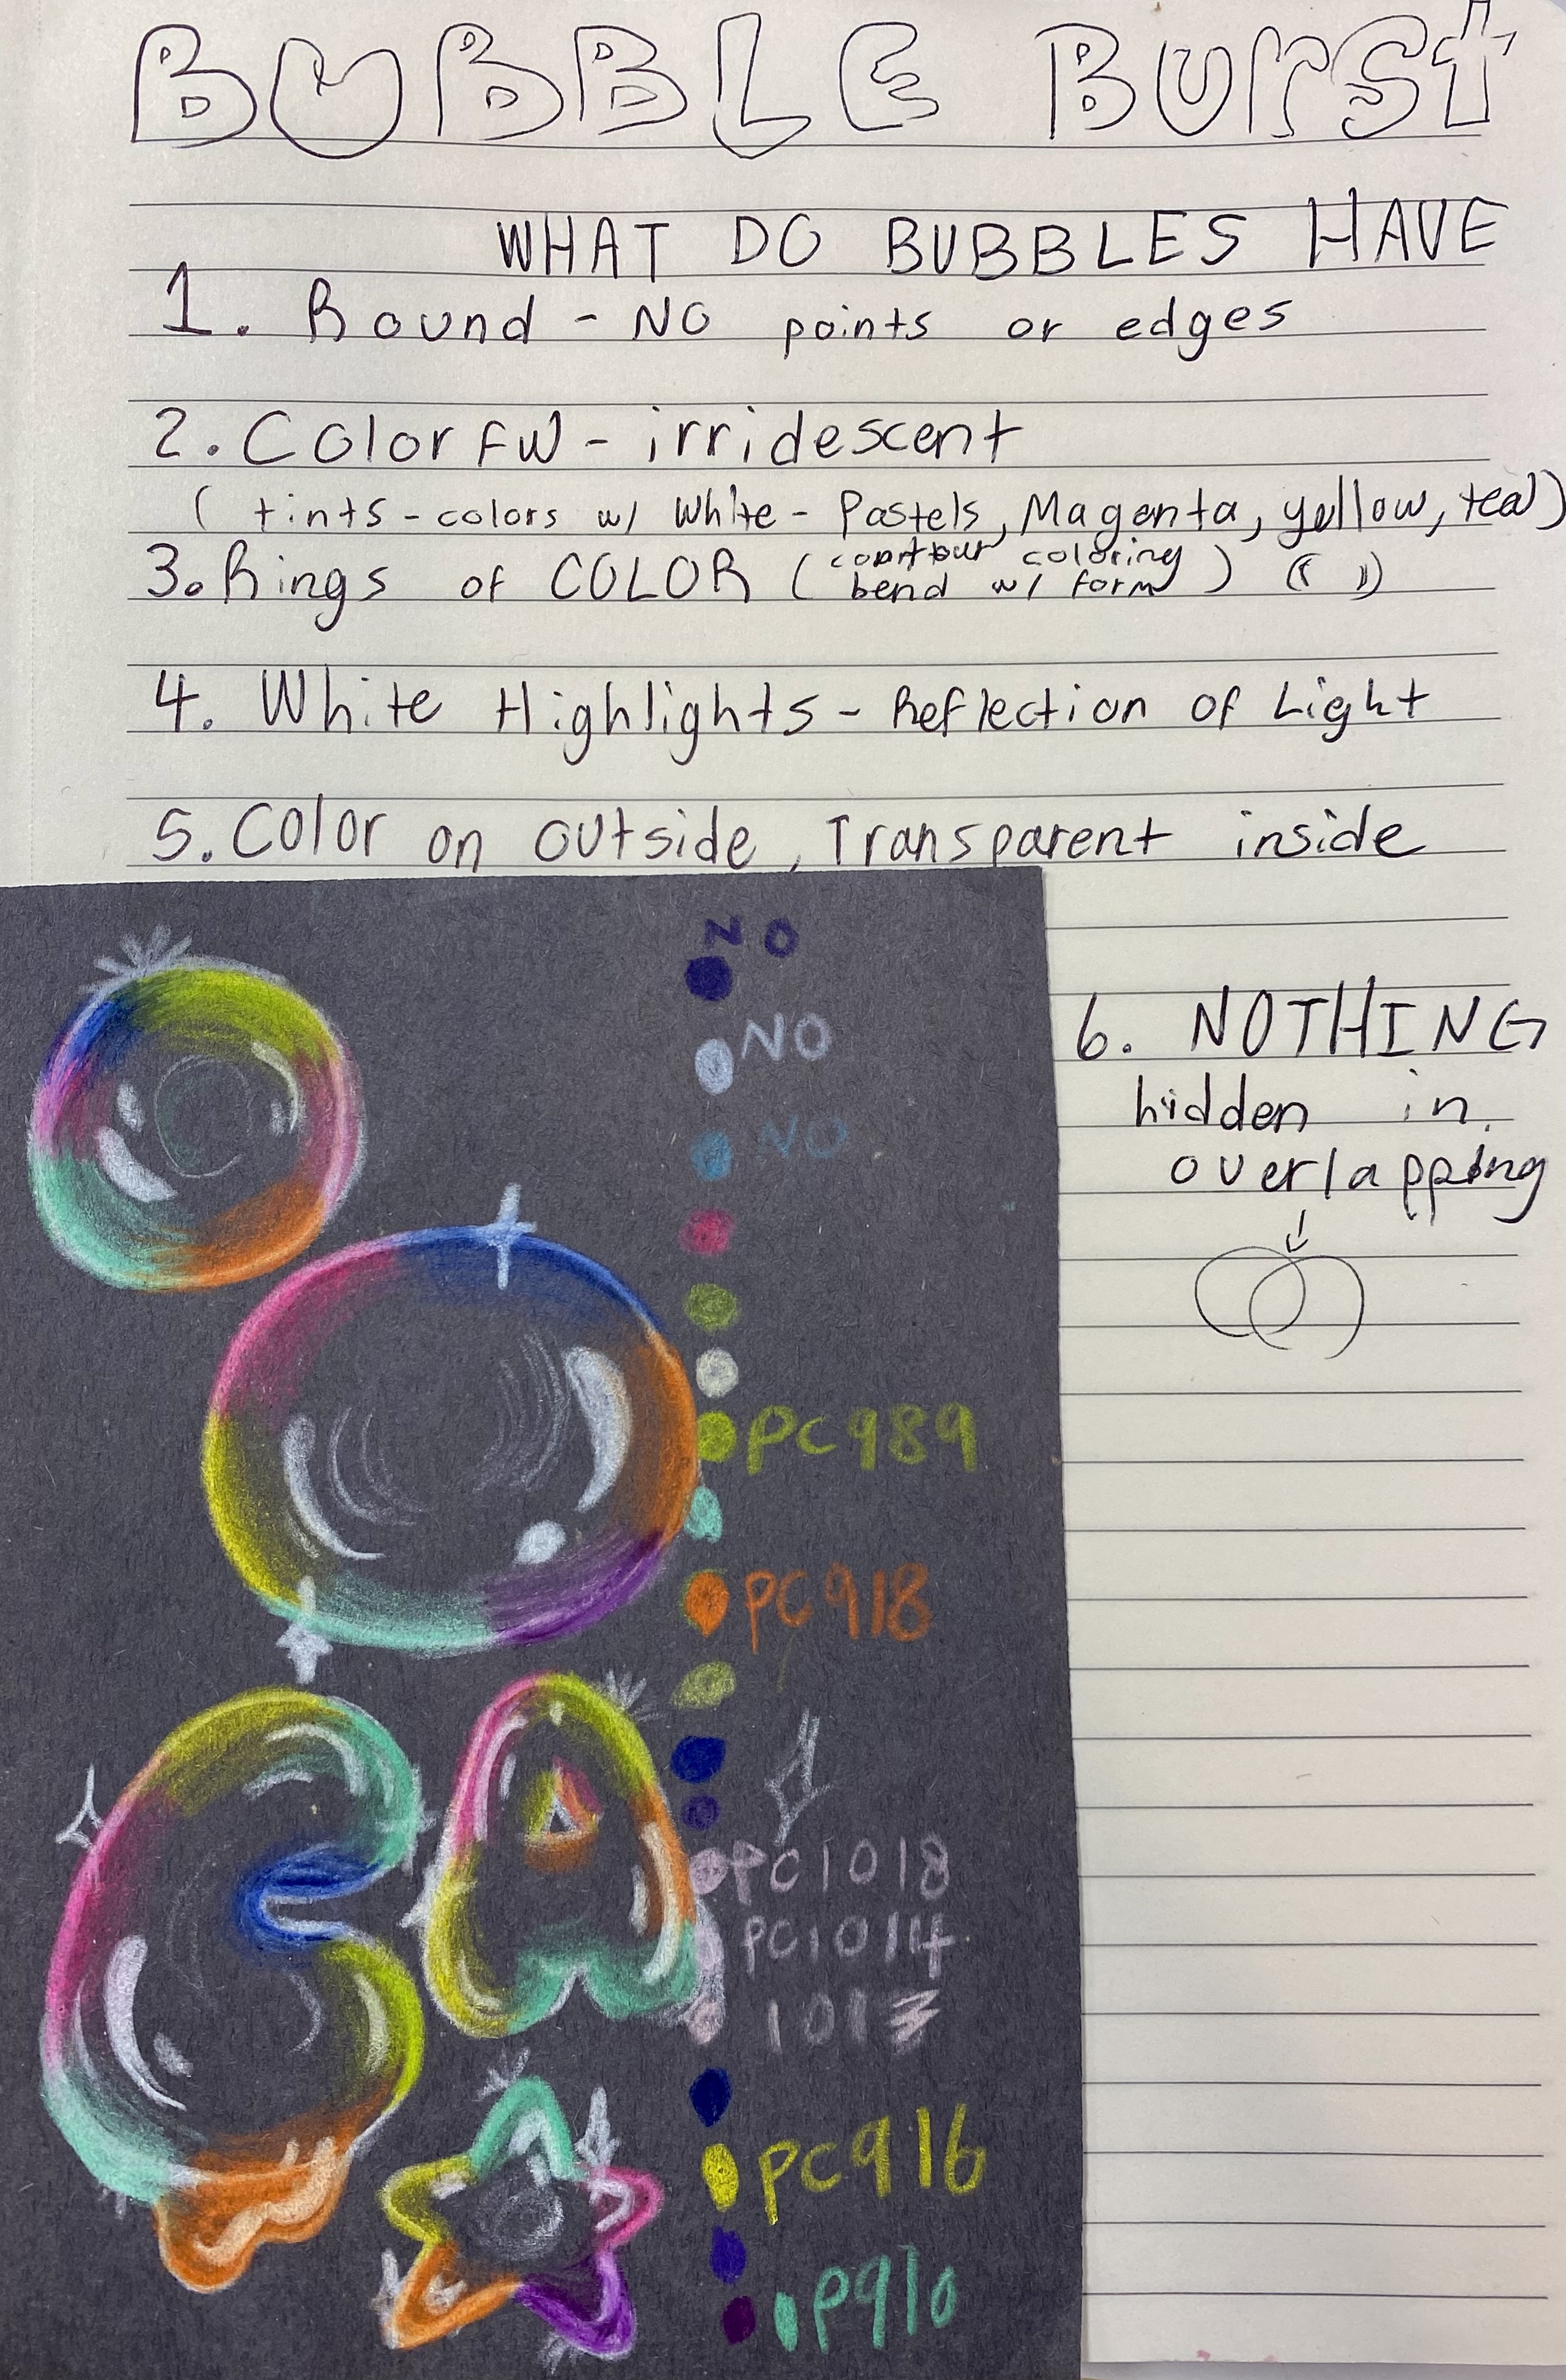 BUBBLE BURST
WHAT DO BUBBLES HAVE
1. Round - NO points or edges
2. Colorful - irridescent
( tints - colors w/ White - Pastels, Magenta, yellow, teal)
3. Rings of COLOR ( contour coloring bend w/ form ) (( ))
4. White Highlights - Reflection of Light
5. Color on outside, Transparent inside
6. NOTHING
hidden in
overlapping
NO
NO
NO
PC989
PC918
PC1018
PC1014
101
PC916
P910
C A